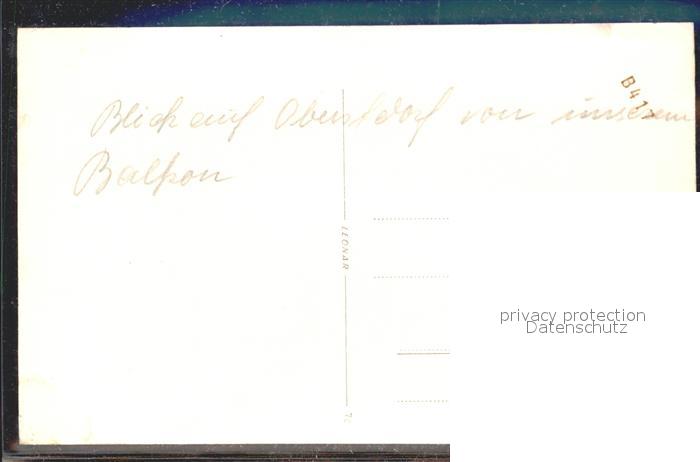 Blick auf Oberstdorf von unserem
Balkon
LEONAR
privacy protection
Datenschutz